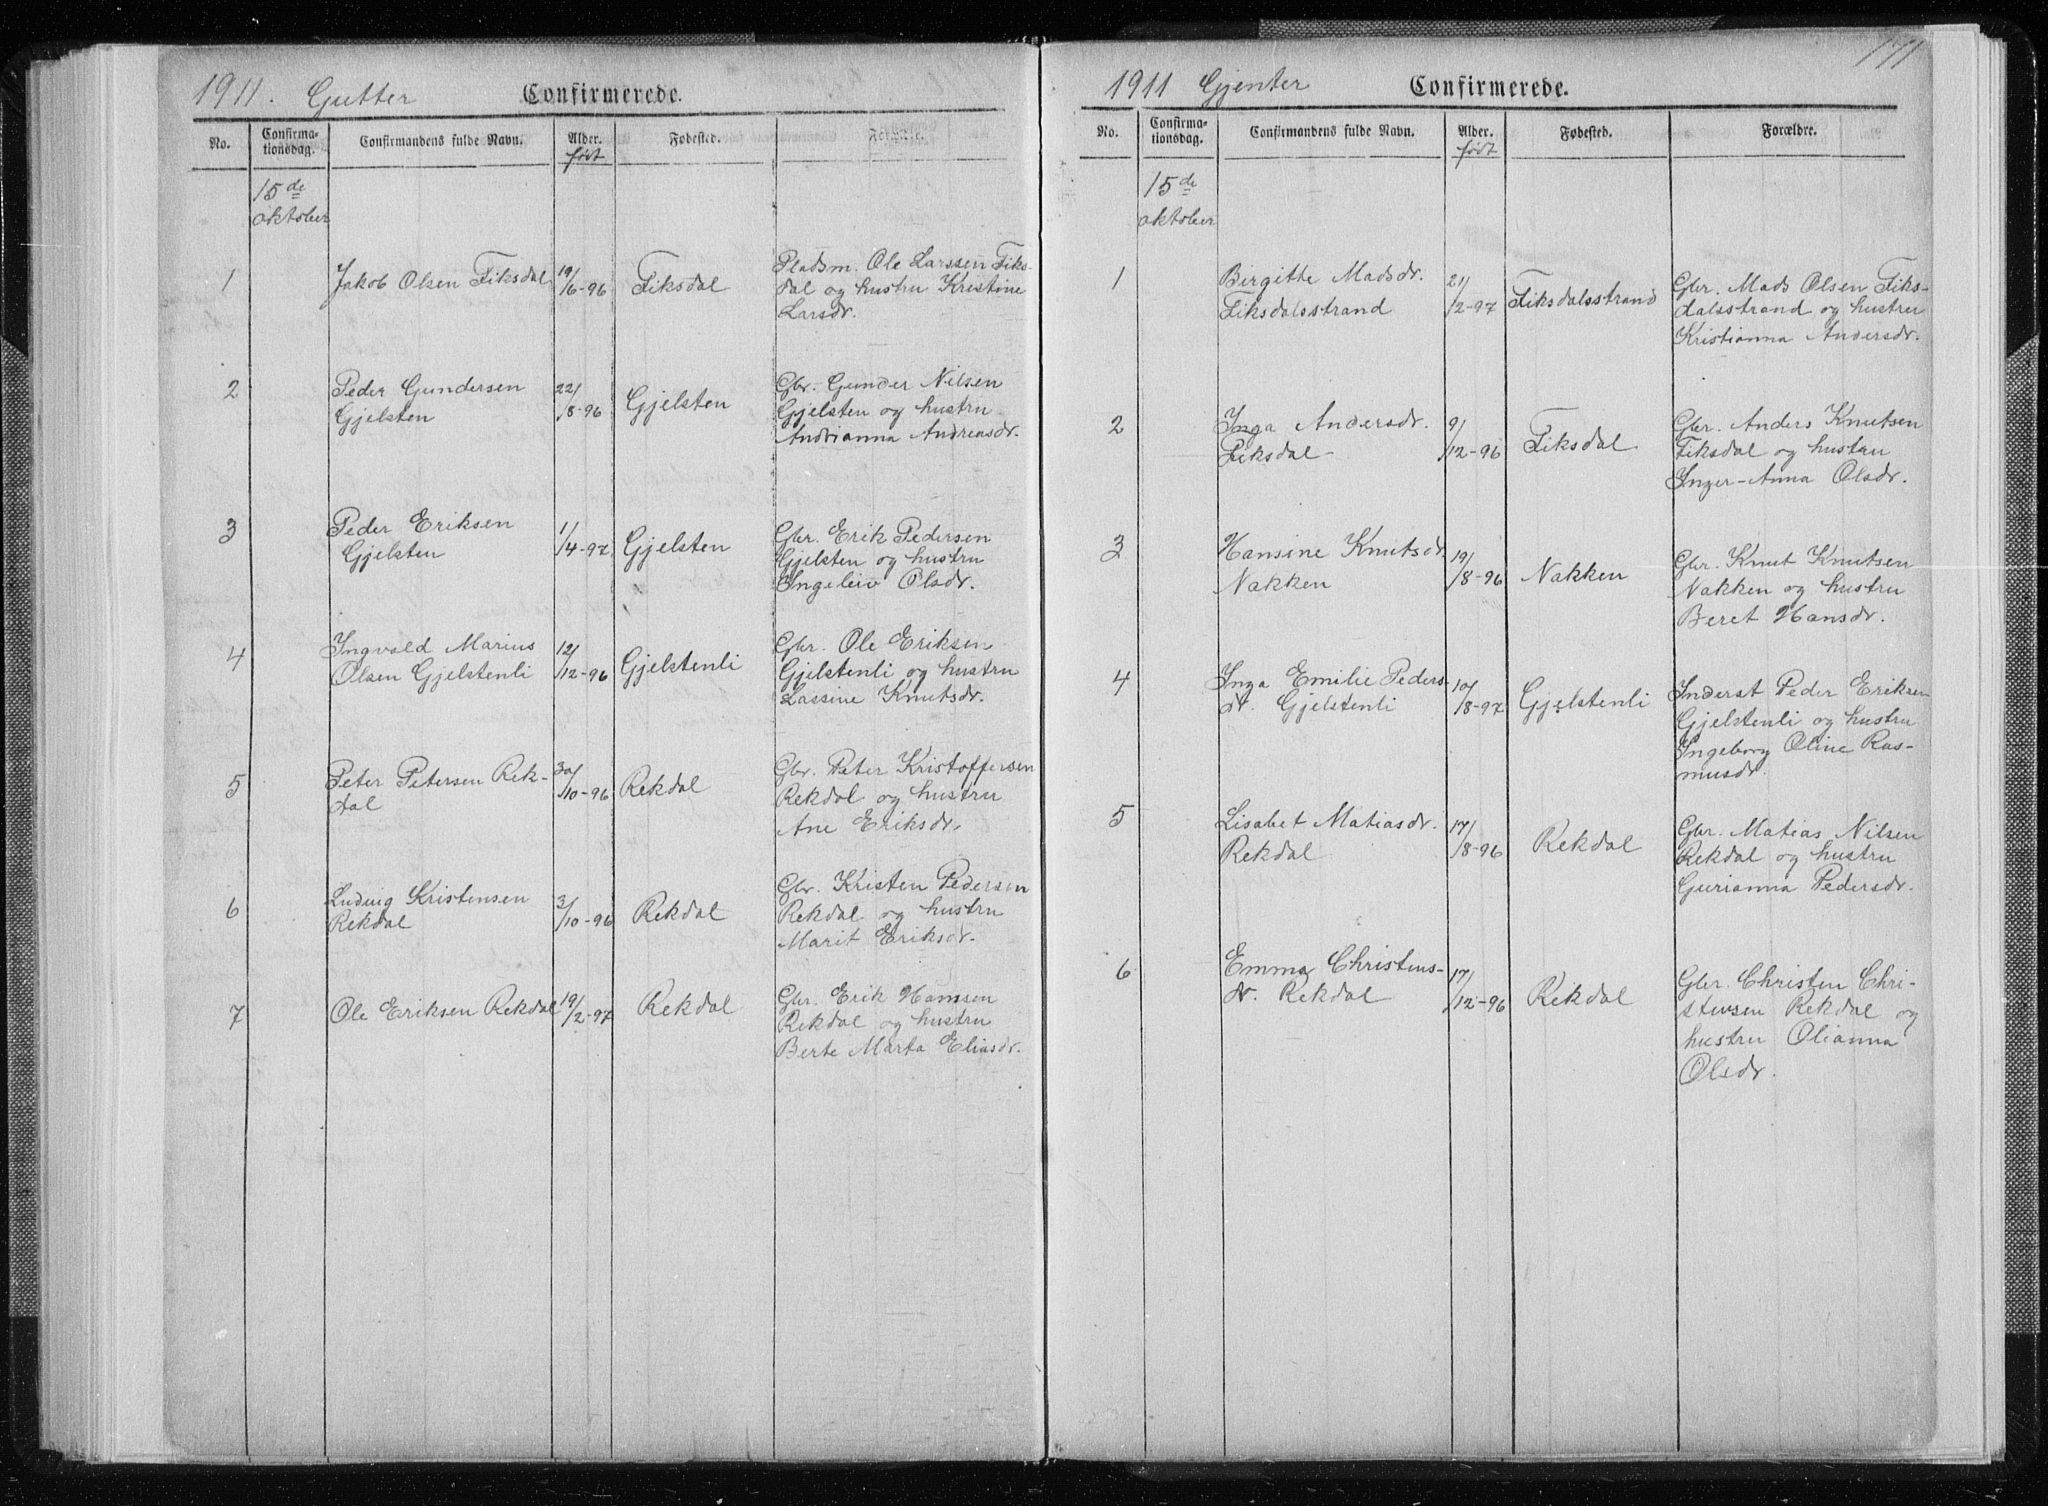 1911. Gutter Confirmerede.
No. Confirma-tionsdag. Confirmandens fulde Navn. Alder. født Fødested. Forældre.
15de
oktober
1 Jakob Olsen Fiksdal 19/6-96 Fiksdal Pladsm. Ole Larssen Fiks-
dal og hustru Kristine
Larsdr.
2 Peder Gundersen 22/8-96 Gjelsten Gbr. Gunder Nilsen
Gjelsten Gjelsten og hustru
Andrianna Andreasdr.
3 Peder Eriksen 1/4-97 Gjelsten Gbr. Erik Pedersen
Gjelsten Gjelsten og hustru
Ingeleiv Olsdr.
4 Ingvald Marius 12/12-96 Gjelstenli Gbr. Ole Eriksen
Olsen Gjelstenli Gjelstenli og hustru
Lassine Knutsdr.
5 Peter Petersen Rek- 30/10-96 Rekdal Gbr. Peter Kristoffersen
dal Rekdal og hustru
Ane Eriksdr.
6 Ludvig Kristensen 3/10-96 Rekdal Gbr. Kristen Pedersen
Rekdal Rekdal og hustru
Marit Eriksdr.
7 Ole Eriksen Rekdal 19/2-97 Rekdal Gbr. Erik Hansen
Rekdal og hustru
Berte Marta Eliasdr.
171
1911 Gjenter Confirmerede.
No. Confirma-tionsdag. Confirmandens fulde Navn. Alder. født Fødested. Forældre.
15de
oktober
1 Birgitte Madsdr. 21/2-97 Fiksdalsstrand Gbr. Mads Olsen Fiks-
Fiksdalsstrand dalsstrand og hustru
Kristianna Andersdr.
2 Inga Andersdr. 9/12-96 Fiksdal Gbr. Anders Knutsen
Fiksdal- Fiksdal og hustru
Inger-Anna Olsdr.
3 Hansine Knutsdr. 19/8-96 Nakken Gbr. Knut Knutsen
Nakken Nakken og hustru
Beret Hansdr.
4 Inga Emilie Peders- 10/8-97 Gjelstenli Inderst Peder Eriksen
dr. Gjelstenli Gjelstenli og hustru
Ingeborg Oline Ras-
musdr.
5 Lisabet Matiasdr. 17/8-96 Rekdal Gbr. Matias Nilsen
Rekdal Rekdal og hustru
Gurianna Pedersdr.
6 Emma Christens- 17/12-96 Rekdal Gbr. Christen Chri-
dr. Rekdal stensen Rekdal og
hustru Olianna
Olsdr.